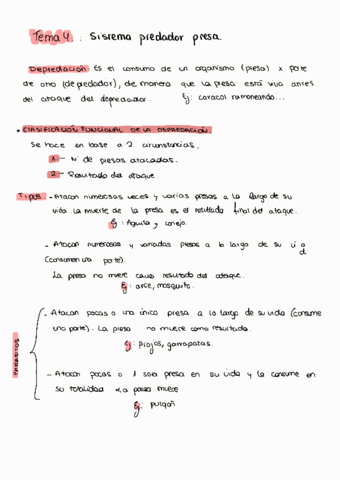 Tema 4: Sistema predador presa.
Depredación: Es el consumo de un organismo (presa) x parte
de otro (depredador), de manera que la presa está viva antes
del ataque del depredador. Ej: caracol ramoneando...
• CLASIFICACIÓN FUNCIONAL DE LA DEPREDACIÓN.
Se hace en base a 2 circunstancias.
1 - N de presas atacadas.
2 - Resultado del ataque
Tipos - Atacan numerosas veces y varias presas a lo largo de su
vida. La muerte de la presa es el resultado final del ataque.
Ej: Aguila y conejo.
- Atacan numerosas y variadas presas a lo largo de su vida
(consumen una parte).
La presa no muere como resultado del ataque.
Ej: arce, mosquito.
PARÁSITOS
- Atacan pocas o una única presa a lo largo de su vida (consume
una parte). La presa no muere como resultado.
Ej: Piojos, garrapatas.
- Atacan pocas o 1 sola presa en su vida y la consume en
su totalidad. La presa muere
Ej: pulgón